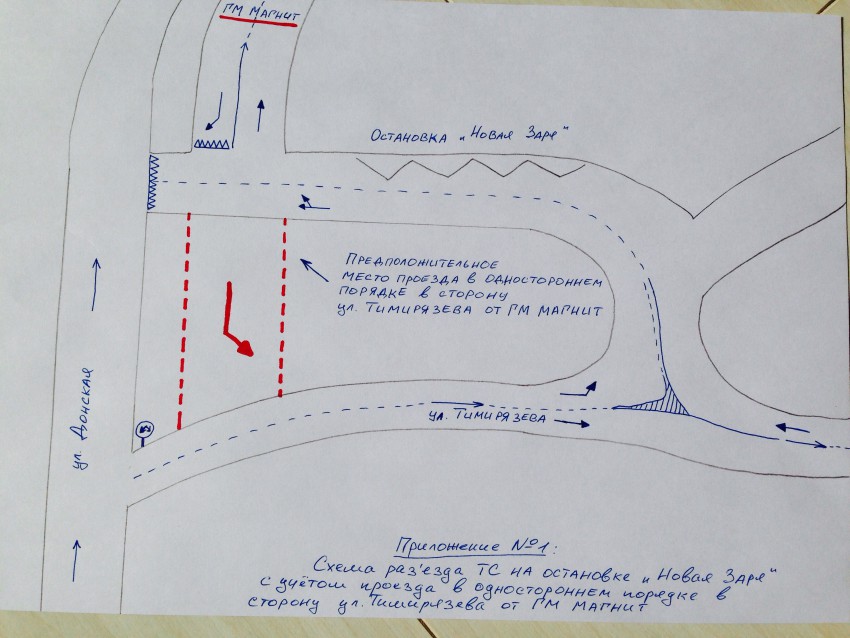 ГМ МАГНИТ
Остановка „Новая Заря"
Предположительное
место проезда в одностороннем
порядке в сторону
ул. Тимирязева от ГМ МАГНИТ
ул. Донская
ул. Тимирязева
Приложение №1:
Схема раз'езда ТС на остановке „Новая Заря"
с учётом проезда в одностороннем порядке в
сторону ул. Тимирязева от ГМ МАГНИТ